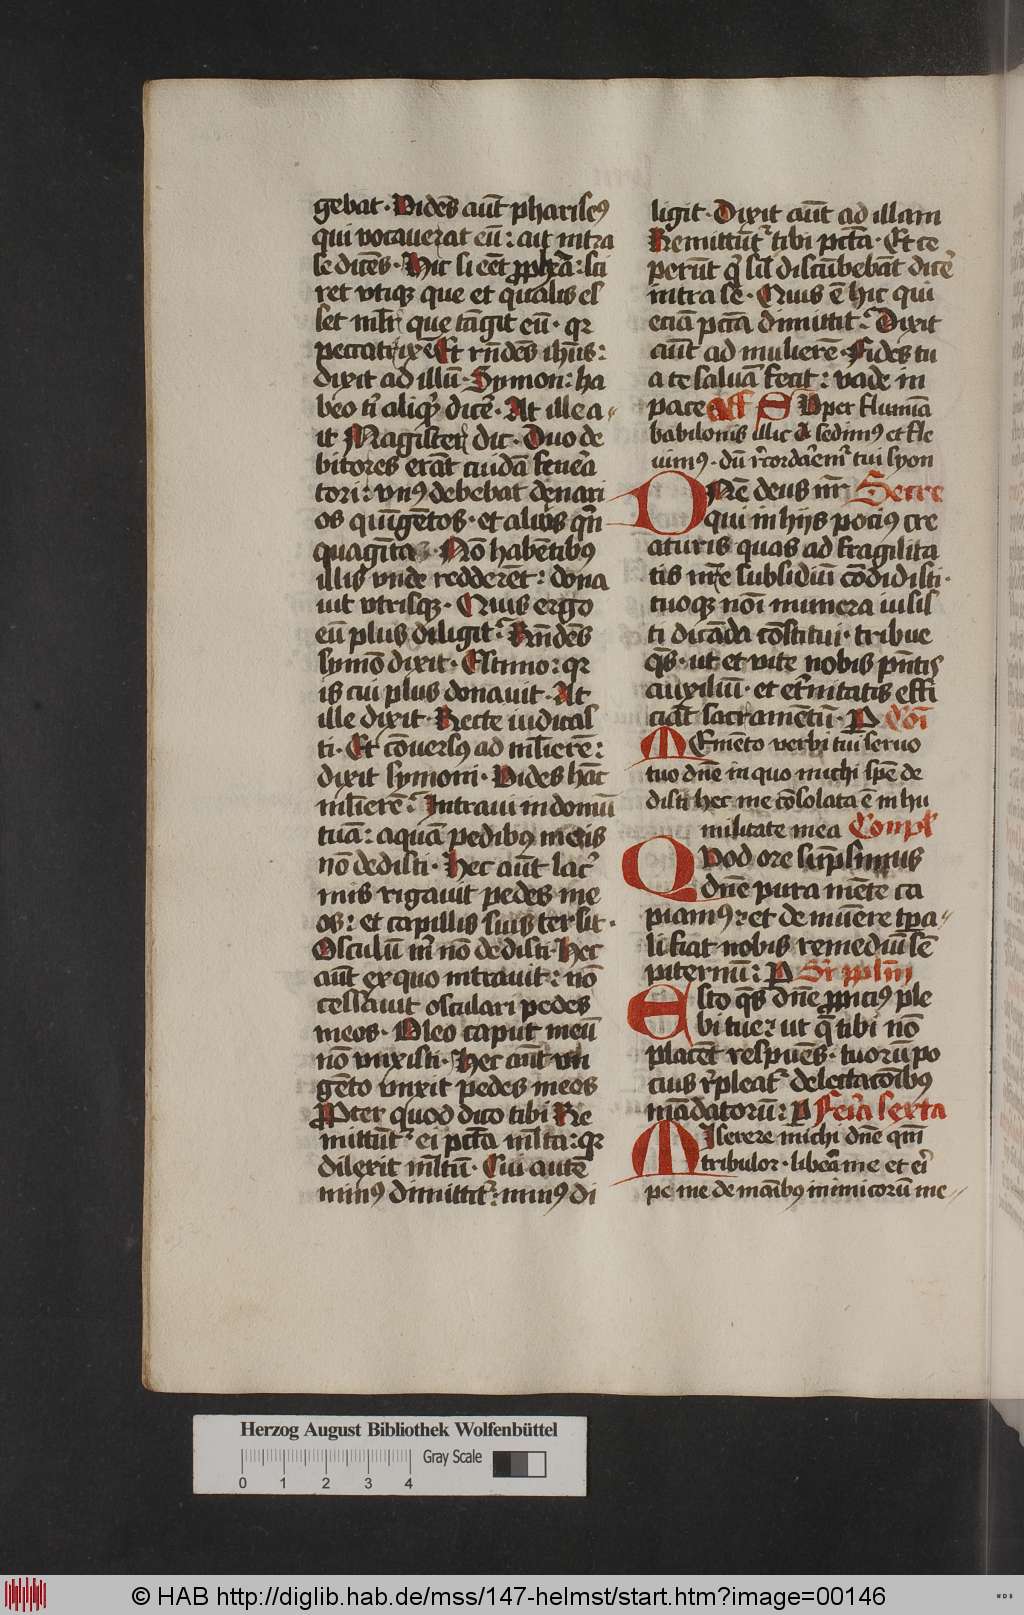 gebat · Vidēs aūt phariseꝰ
qui vocauerat eū : ait intra
se dicēs · Hic si eēt ꝓpħa : sci
ret vtiqꝫ que et qualis es
set ml̄r que tāgit eū · qꝛ
peccatrix ē Et rn̄dēs ihūs :
dixit ad illū · Symon : ha
beo tͥ aliqͥd dicẽ · At ille a-
it Magister dic · Duo de
bitores erāt cuidā feneͣ
tori : vnꝰ debebat denari
os quīgētos · et alius qͥn
quagīta · Nō habētibꝰ
illis vnde redderēt : dona
uit vtrisqꝫ · Quis ergo
eū plus diligit · Rn̄dēs
symō dixit · Estimo : qꝛ
is cui plus donauit · At
ille dixit · Recte iudicas
ti · Et cōuersꝰ ad ml̄ierē :
dixit symoni · Vides hāc
ml̄ierē · Intraui in domū
tuā : aquā pedibꝰ meis
nō dedisti · Hec aūt lacͥ
mis rigauit pedes me
os : et capillis suis tersit ·
Osculū mͥ nō dedisti · Hec
aūt ex quo intrauit : nō
cessauit osculari pedes
meos · Oleo caput meū
nō vnxisti · Hec aūt vn
gēto vnxit pedes meos
Ꝓpter quod dico tibi Re
mittūtͬ ei pctā ml̄ta : qꝛ
dilexit ml̄tū · Cui autē
minꝰ dimittitͬ : minꝰ di
ligit · Dixit aūt ad illam
Remittūtͬ tibi pctā · Et ce
perūt qͥ sil̄ discūbebāt dicẽ
intra se · Quis ē hic qui
eciā pctā dimittit · Dixit
aūt ad mulierē · Fides tu
a te saluā fecit : vade in
pace off Super flumīa
babilonis illic sedimꝰ et fle
uimꝰ · dū rͤcordaremͬ tui syon
DNē deus nr̄ Secre
qui in hijs pociꝰ cre
aturis quas ad fragilita
tis nr̄e subsidiū cōdidisti ·
tuoqꝫ noī munera iussis
ti dicāda cōstitui · tribue
q̄s · ut et vite nobis pn̄tis
auxiliū · et et̄nitatis effi
ciāt sacramētū · P Cōī
MEmēto verbi tui seruo
tuo dn̄e in quo michi spē de
disti hec me cōsolata ē in hu
militate mea Compl̄
QVod ore sūpsimus
dn̄e pura mēte ca
piamꝰ : et de mūere tp̄a-
li fiat nobis remediū sē
piternū : P Sr̄ ppl̄m
Esto q̄s dn̄e ꝓpiciꝰ ple
bi tue : ut q̄ tibi nō
placēt respuēs · tuorū po
cius rͤpleatͬ delectacōibꝰ
mādatorū : P Feria sexta
MIserere michi dn̄e qm̄
tribulor · libeͣ me et eͥ
pe me de manibꝰ inimicorū me-
Herzog August Bibliothek Wolfenbüttel
Gray Scale
0 1 2 3 4
© HAB http://diglib.hab.de/mss/147-helmst/start.htm?image=00146